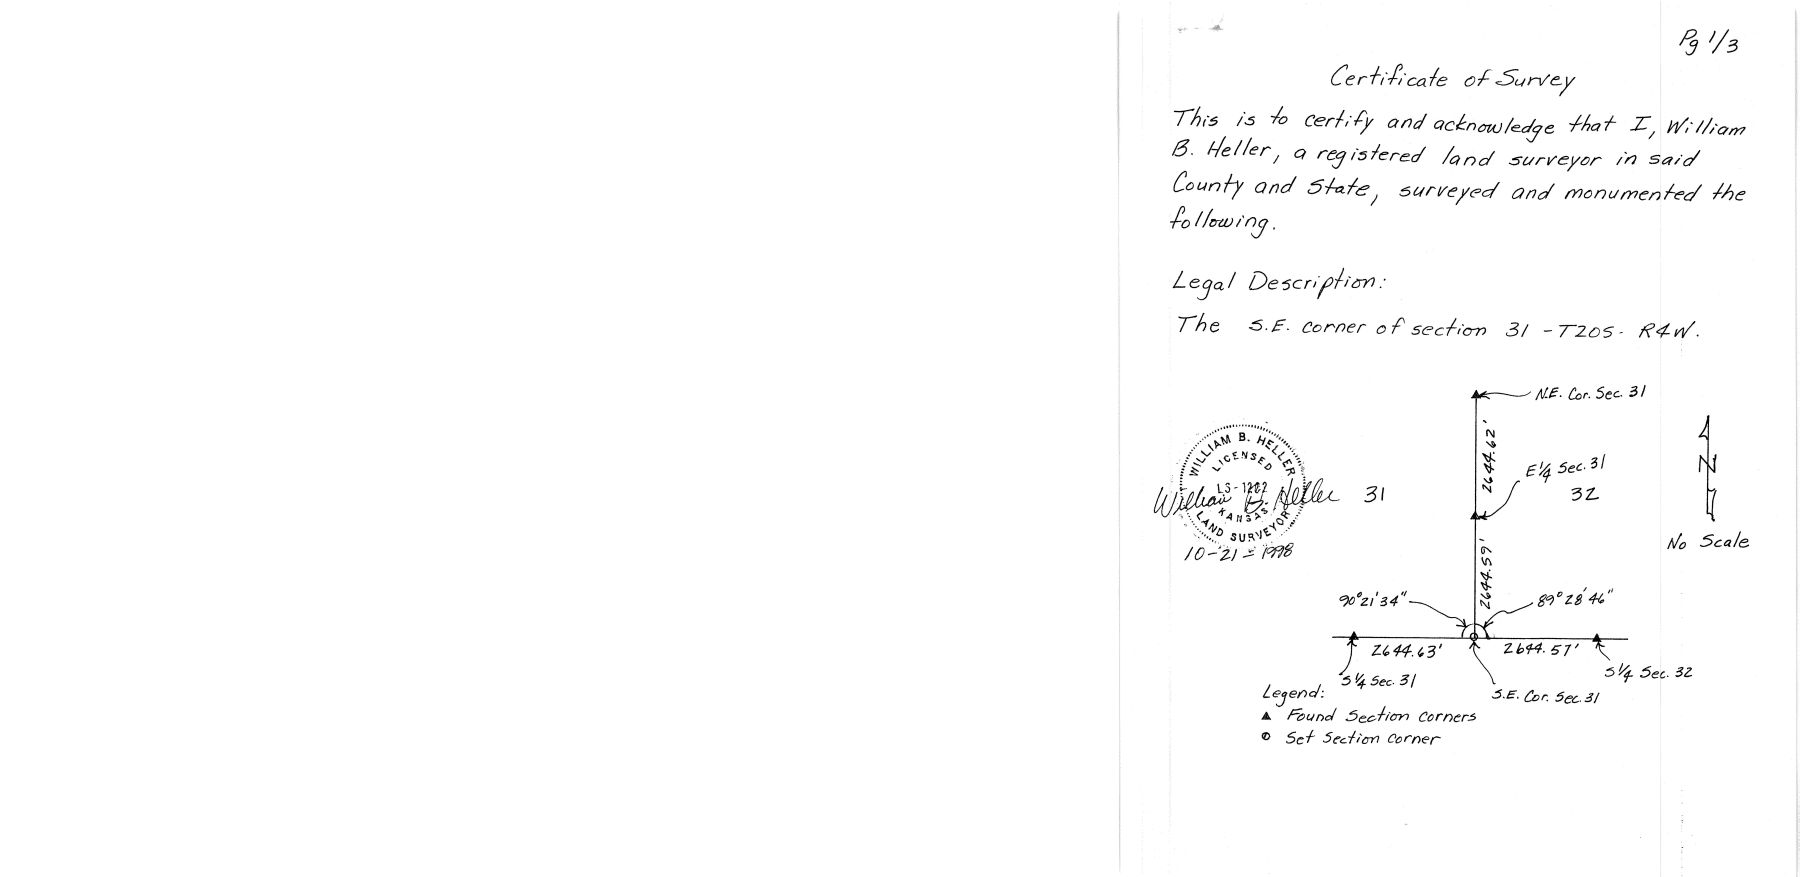 Pg 1/3
Certificate of Survey
This is to certify and acknowledge that I, William
B. Heller, a registered land surveyor in said
County and State, surveyed and monumented the
following.
Legal Description:
The S.E. corner of section 31 - T20S - R4W.
N.E. Cor. Sec. 31
2644.62'
E1/4 Sec. 31
31
32
WILLIAM B. HELLER
LICENSED
KANSAS
LAND SURVEYOR
William B. Heller
10-21-1998
N
No Scale
2644.59'
90°21'34"
89°28'46"
2644.63'
2644.57'
S1/4 Sec. 31
S1/4 Sec. 32
S.E. Cor. Sec. 31
Legend:
▲ Found Section Corners
Set Section Corner